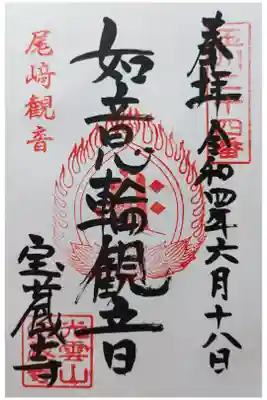 奉拝 令和四年六月十八日
如意輪観音
尾﨑観音
宝蔵寺
光雲山